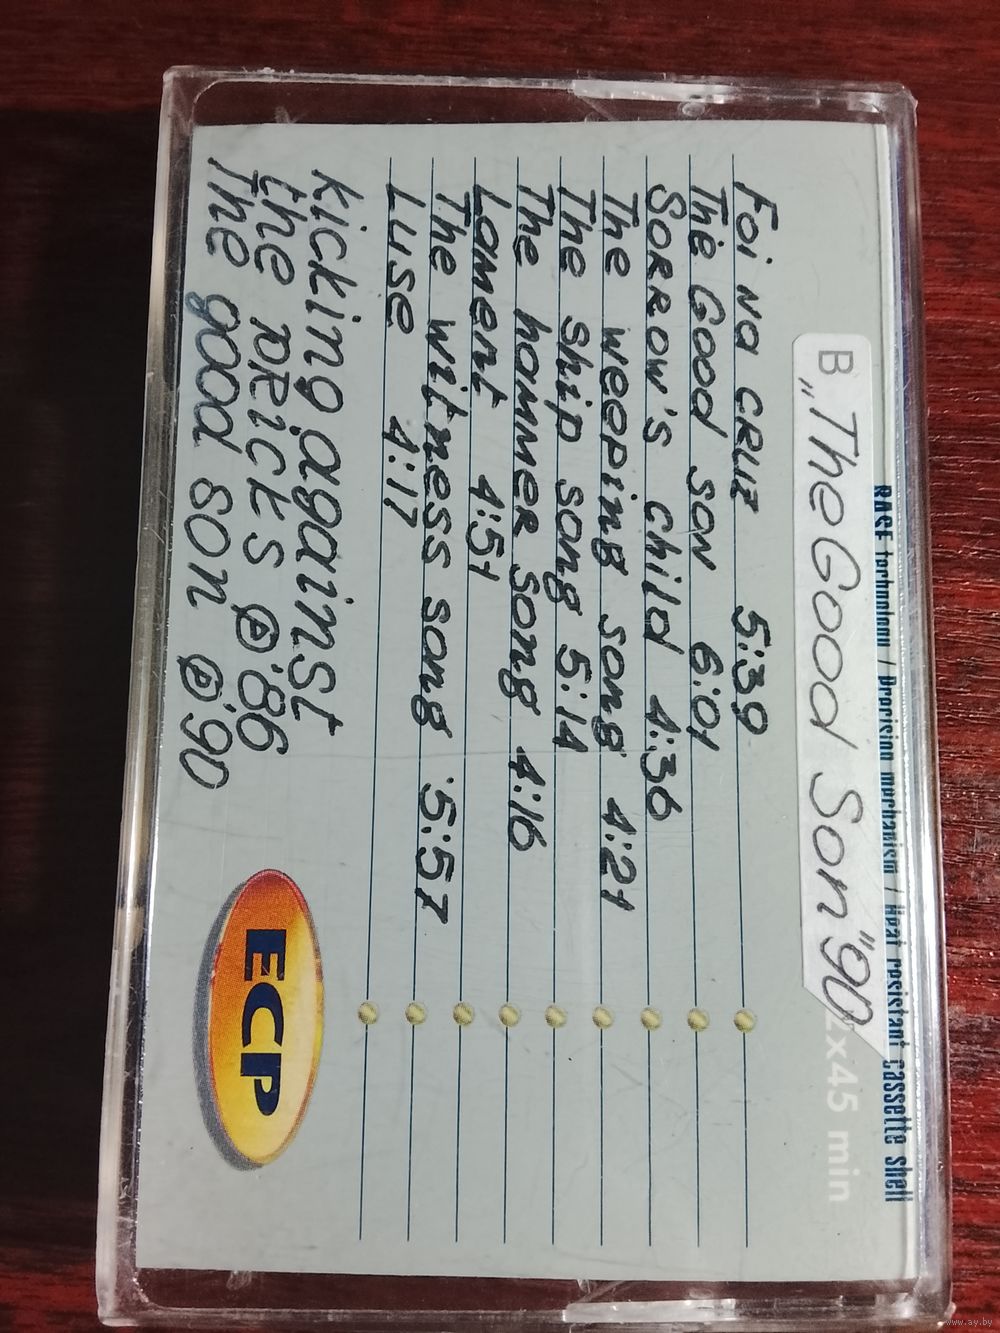 RASF technology / Precision mechanism / Heat resistant cassette shell
B „The Good Son" 90
2x45 min
Foi na cruz 5:39
The Good son 6:01
Sorrow's child 4:36
The weeping song 4:21
The ship song 5:14
The hammer song 4:16
Lament 4:51
The witness song 5:57
Luse 4:17
kicking against
the pricks ℗'86
The good son ℗'90
ECP
www.ay.by